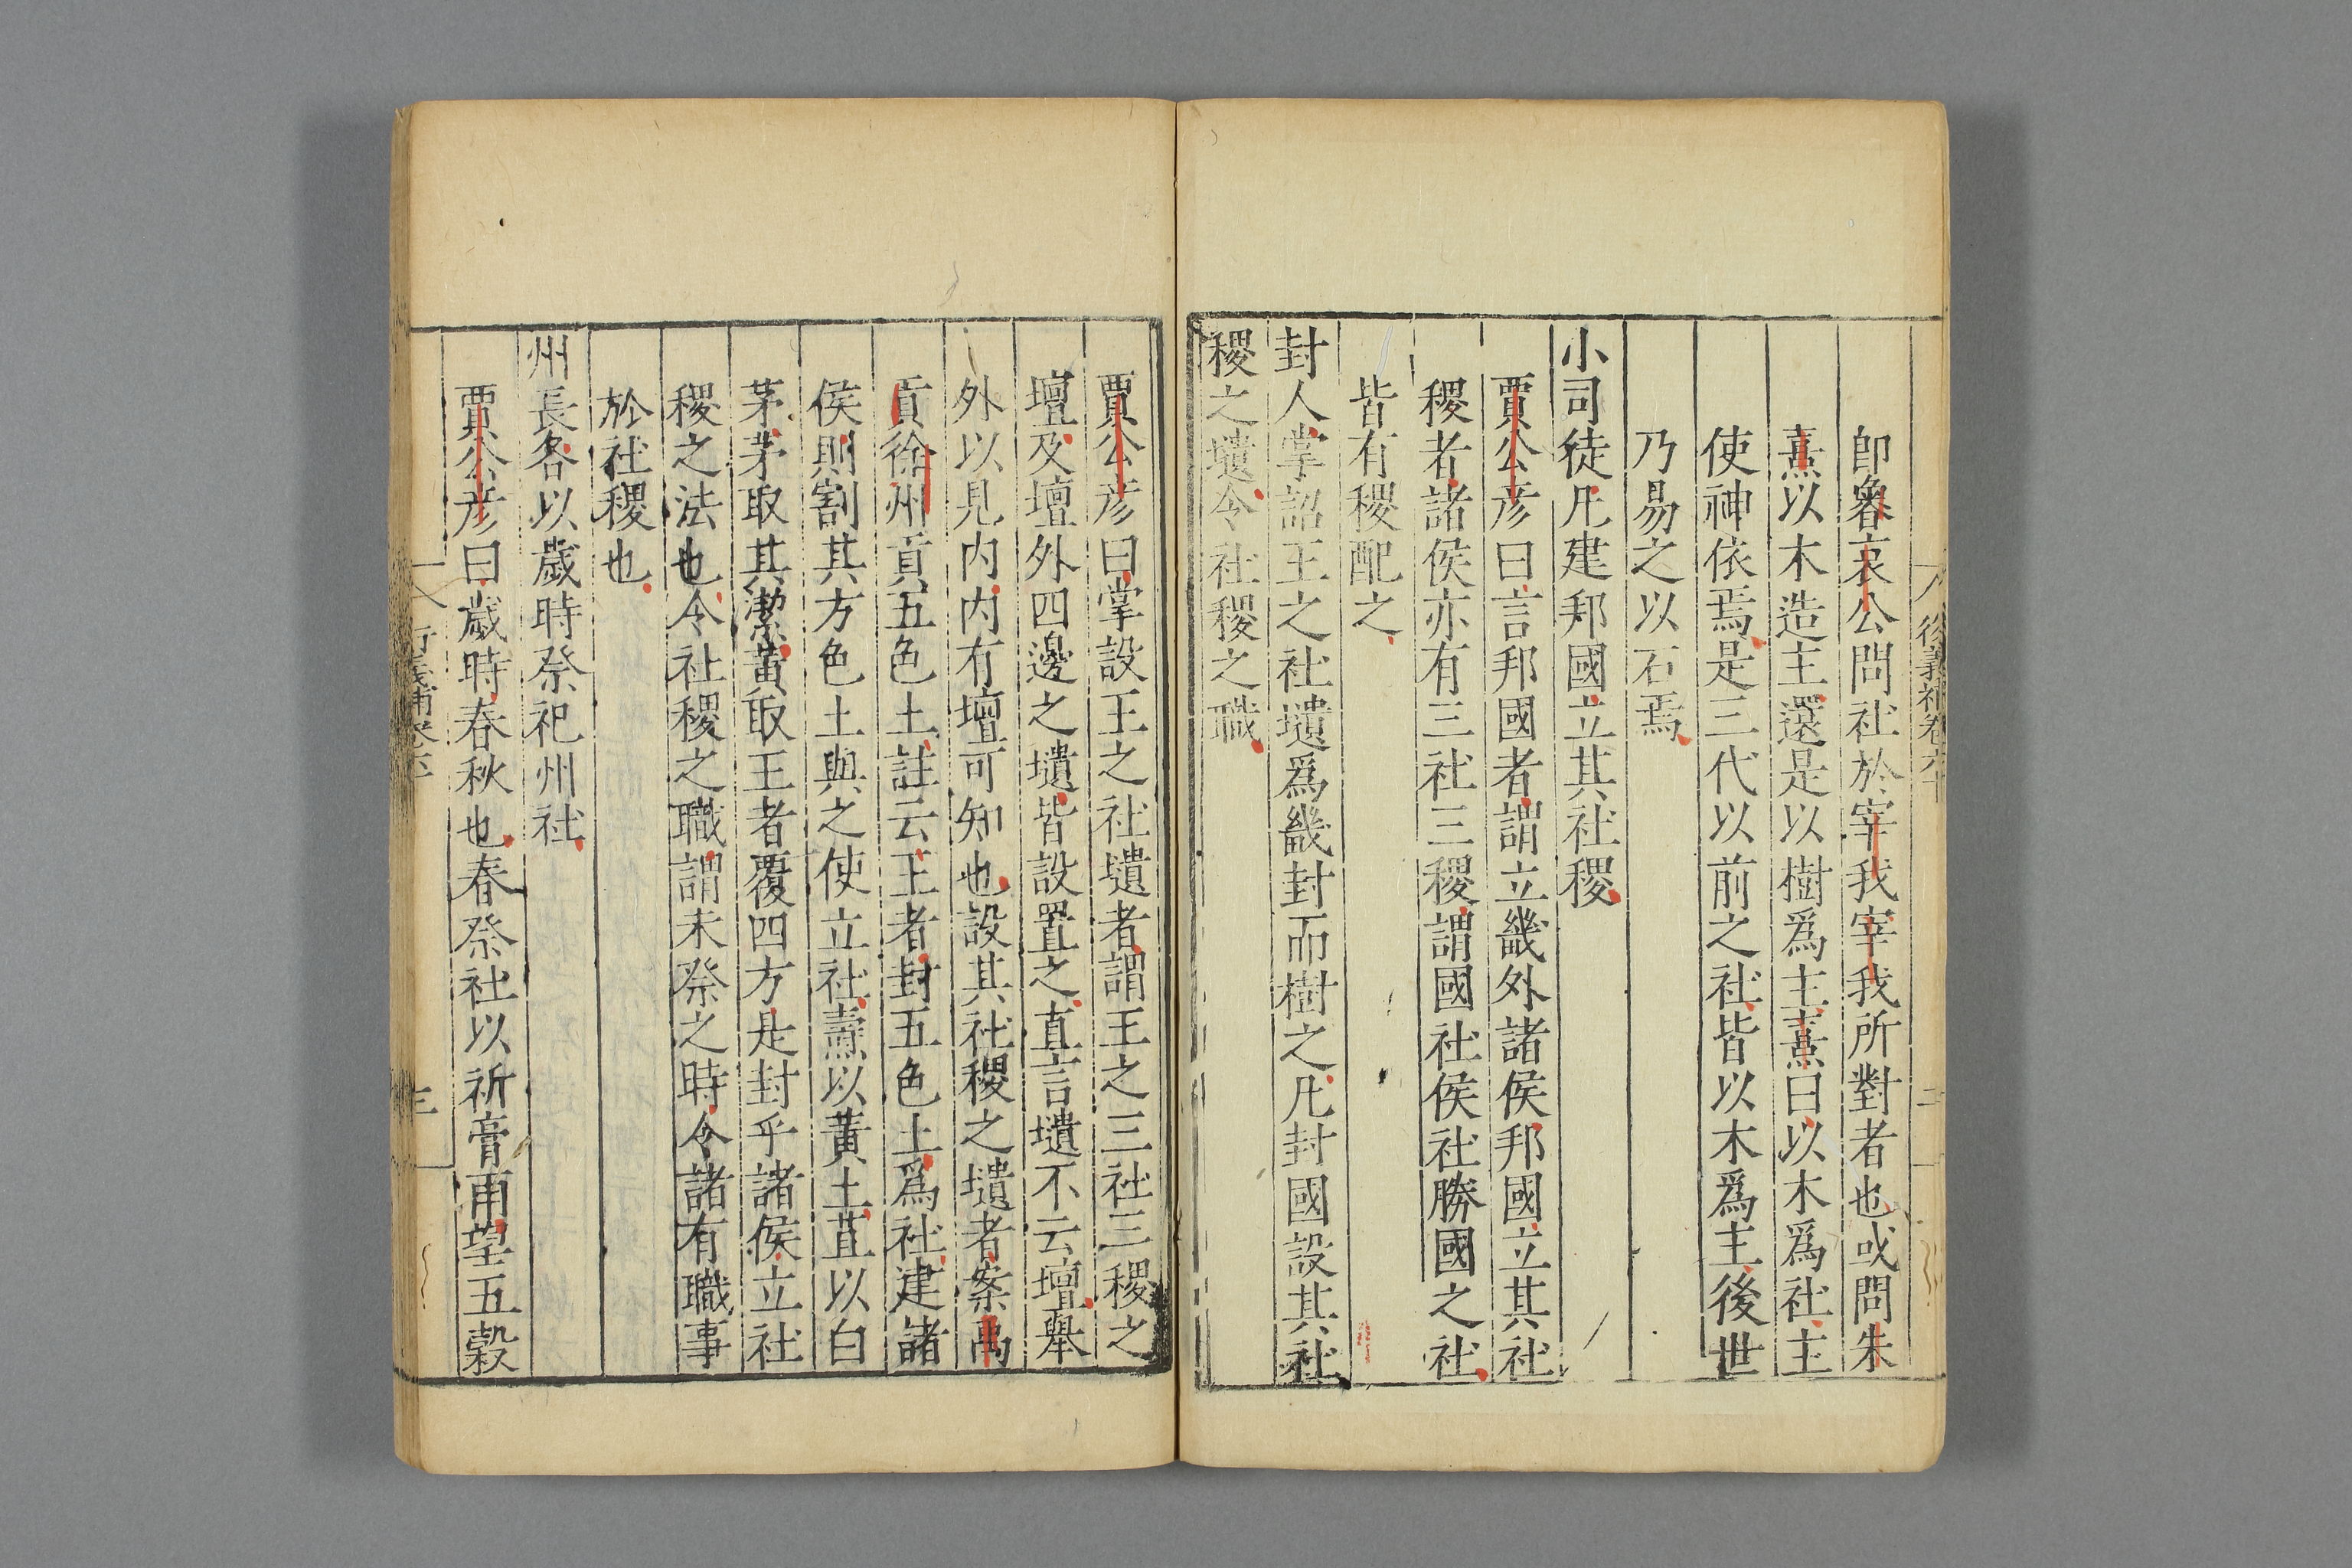 即魯哀公問社於宰我宰我所對者也或問朱
熹以木造主還是以樹爲主熹曰以木爲社主
使神依焉是三代以前之社皆以木爲主後世
乃易之以石焉
小司徒凡建邦國立其社稷
賈公彦曰言邦國者謂立畿外諸侯邦國立其社
稷者諸侯亦有三社三稷謂國社侯社勝國之社
皆有稷配之
封人掌詔王之社壝爲畿封而樹之凡封國設其社
稷之壝令社稷之職
賈公彦曰掌設王之社壝者謂王之三社三稷之
壇及壇外四邊之壝皆設置之直言壝不云壇舉
外以見内内有壇可知也設其社稷之壝者案禹
貢徐州貢五色土註云王者封五色土爲社建諸
侯則割其方色土與之使立社燾以黄土苴以白
茅茅取其潔黄取王者覆四方是封乎諸侯立社
稷之法也令社稷之職謂未祭之時令諸有職事
於社稷也
州長各以歲時祭祀州社
賈公彦曰歲時春秋也春祭社以祈膏雨望五穀